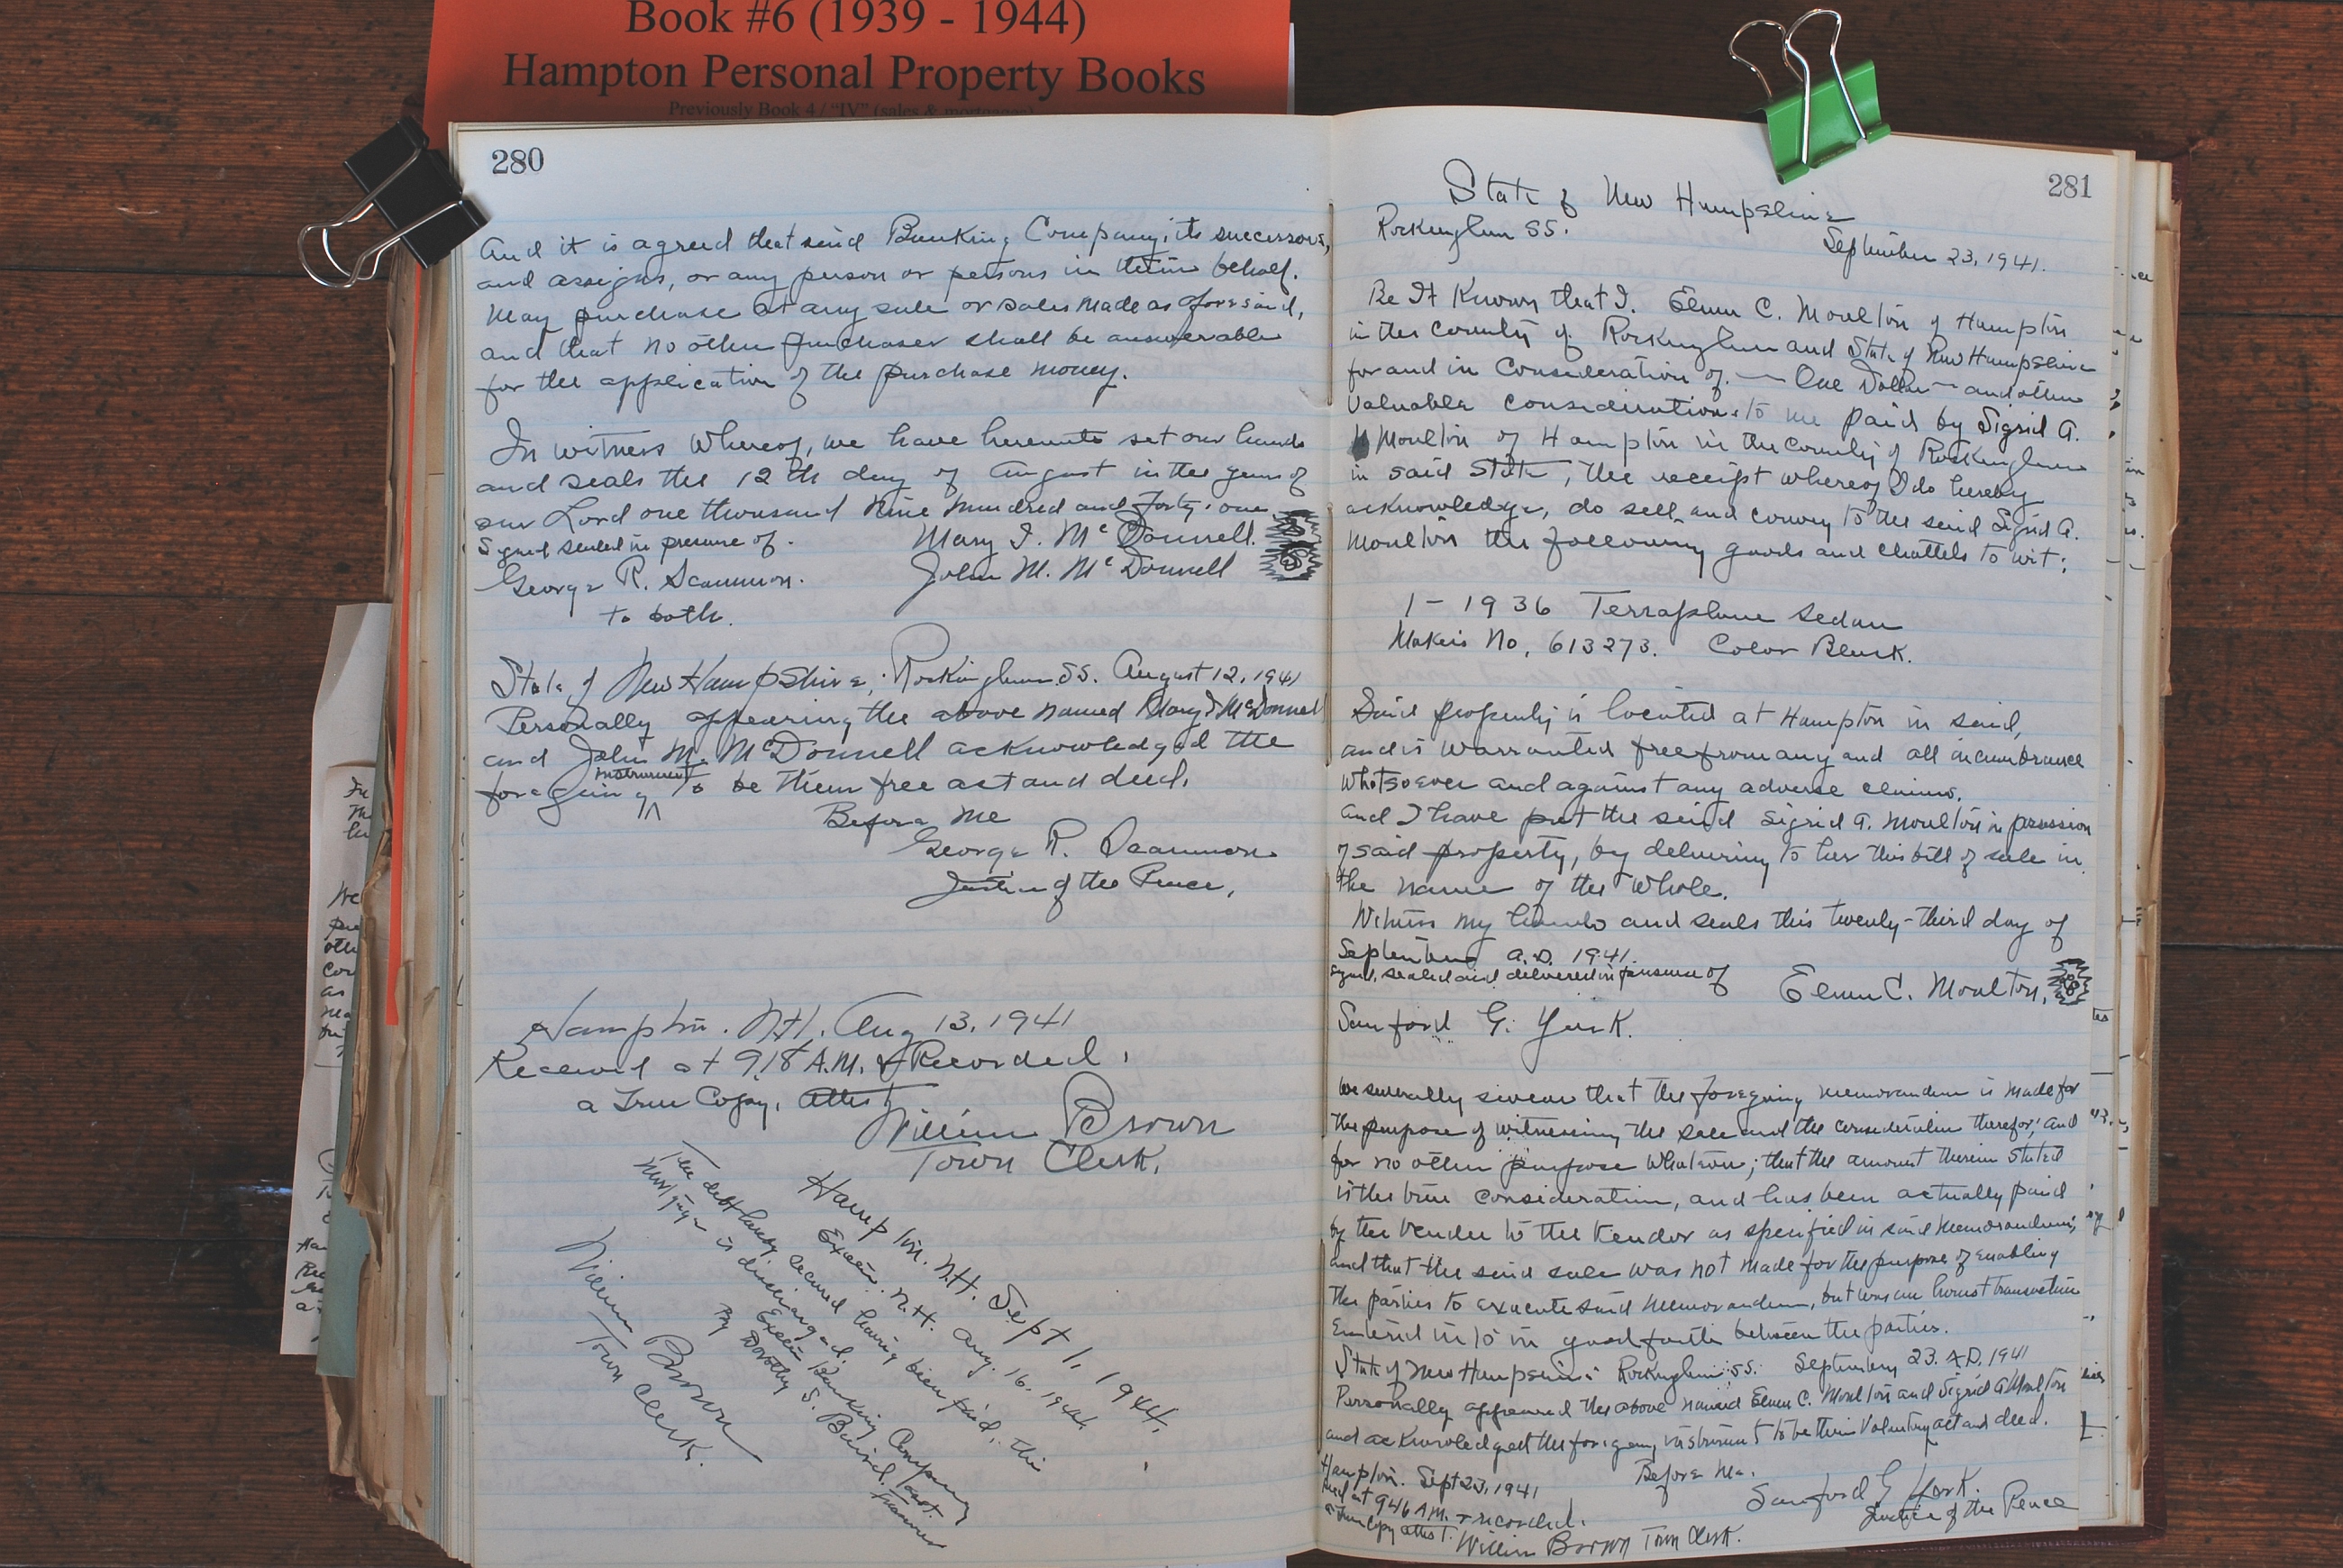 Book #6 (1939 - 1944)
Hampton Personal Property Books
Previously Book 4 / "IV" (sales & mortgages)
280
And it is agreed that said Banking Company, its successors,
and assigns, or any person or persons in their behalf.
May purchase at any sale or sales made as aforesaid,
and that no other purchaser shall be answerable
for the application of the purchase money.
In witness whereof, we have hereunto set our hands
and seals the 12th day of August in the year of
our Lord one thousand Nine hundred and forty-one
Signed sealed in presence of.
Mary I. McDonnell.
George R. Scammon.
John M. McDonnell
to both.
State of New Hampshire, Rockingham SS. August 12, 1941
Personally appearing the above named Mary I McDonnell
and John M. McDonnell acknowledged the
foregoing instrument to be their free act and deed.
Before me
George R. Scammon
Justice of the Peace.
Hampton. N.H. Aug 13, 1941
Received at 9.18 A.M. & Recorded.
a True Copy, Attest
William Brown
Town Clerk.
Hampton. N.H. Sept 1, 1944.
Exeter. N.H. Aug. 16, 1944.
The debt hereby secured having been paid, this
Mortgage is discharged.
Exeter Banking Company
By Dorothy S. Baird. asst. Treasurer
William Brown
Town Clerk.
281
State of New Hampshire
Rockingham SS.
September 23, 1941.
Be It Known that I. Elmer C. Moulton of Hampton
in the County of Rockingham and State of New Hampshire
for and in Consideration of. — One Dollar — and other
Valuable consideration. to me paid by Sigrid A.
Moulton of Hampton in the County of Rockingham
in said State, the receipt whereof I do hereby
acknowledge, do sell and convey to the said Sigrid A.
Moulton the following goods and chattels to wit:
1 - 1936 Terraplane Sedan
Maker's No. 613273. Color Black.
Said property is located at Hampton in said,
and is warranted free from any and all incumbrance
whatsoever and against any adverse claims.
And I have put the said Sigrid A. Moulton in possession
of said property, by delivering to her this bill of sale in
the name of the whole.
Witness my hands and seals this twenty-third day of
September A.D. 1941.
Signed, sealed and delivered in presence of
Elmer C. Moulton,
Sanford G. York.
We severally swear that the foregoing memorandum is made for
the purpose of witnessing the sale and the consideration therefor; and
for no other purpose whatever; that the amount therein stated
is the true consideration, and has been actually paid
by the Vendee to the Vendor as specified in said Memorandum;
and that the said sale was not made for the purpose of enabling
the parties to execute said Memorandum, but was an honest transaction
Entered into in good faith between the parties.
State of New Hampshire Rockingham SS. September 23. A.D. 1941
Personally appeared the above named Elmer C. Moulton and Sigrid A Moulton
and acknowledged the foregoing instrument to be their Voluntary act and deed.
Before Me.
Sanford G York.
Justice of the Peace
Hampton. Sept 23, 1941
Rec'd at 9 46 A.M. & recorded.
a true Copy attest. William Brown Town Clerk.